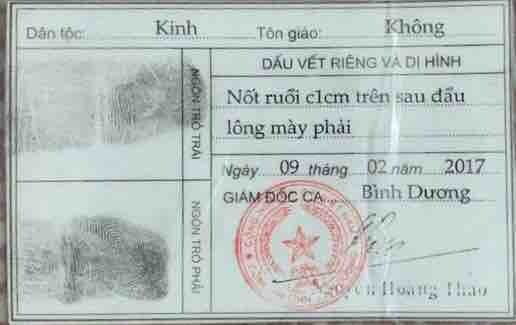 Dân tộc: Kinh Tôn giáo: Không
NGÓN TRỎ TRÁI
DẤU VẾT RIÊNG VÀ DỊ HÌNH
Nốt ruồi c1cm trên sau đầu
lông mày phải
Ngày 09 tháng 02 năm 2017
GIÁM ĐỐC CA Bình Dương
NGÓN TRỎ PHẢI
Hoàng Thao